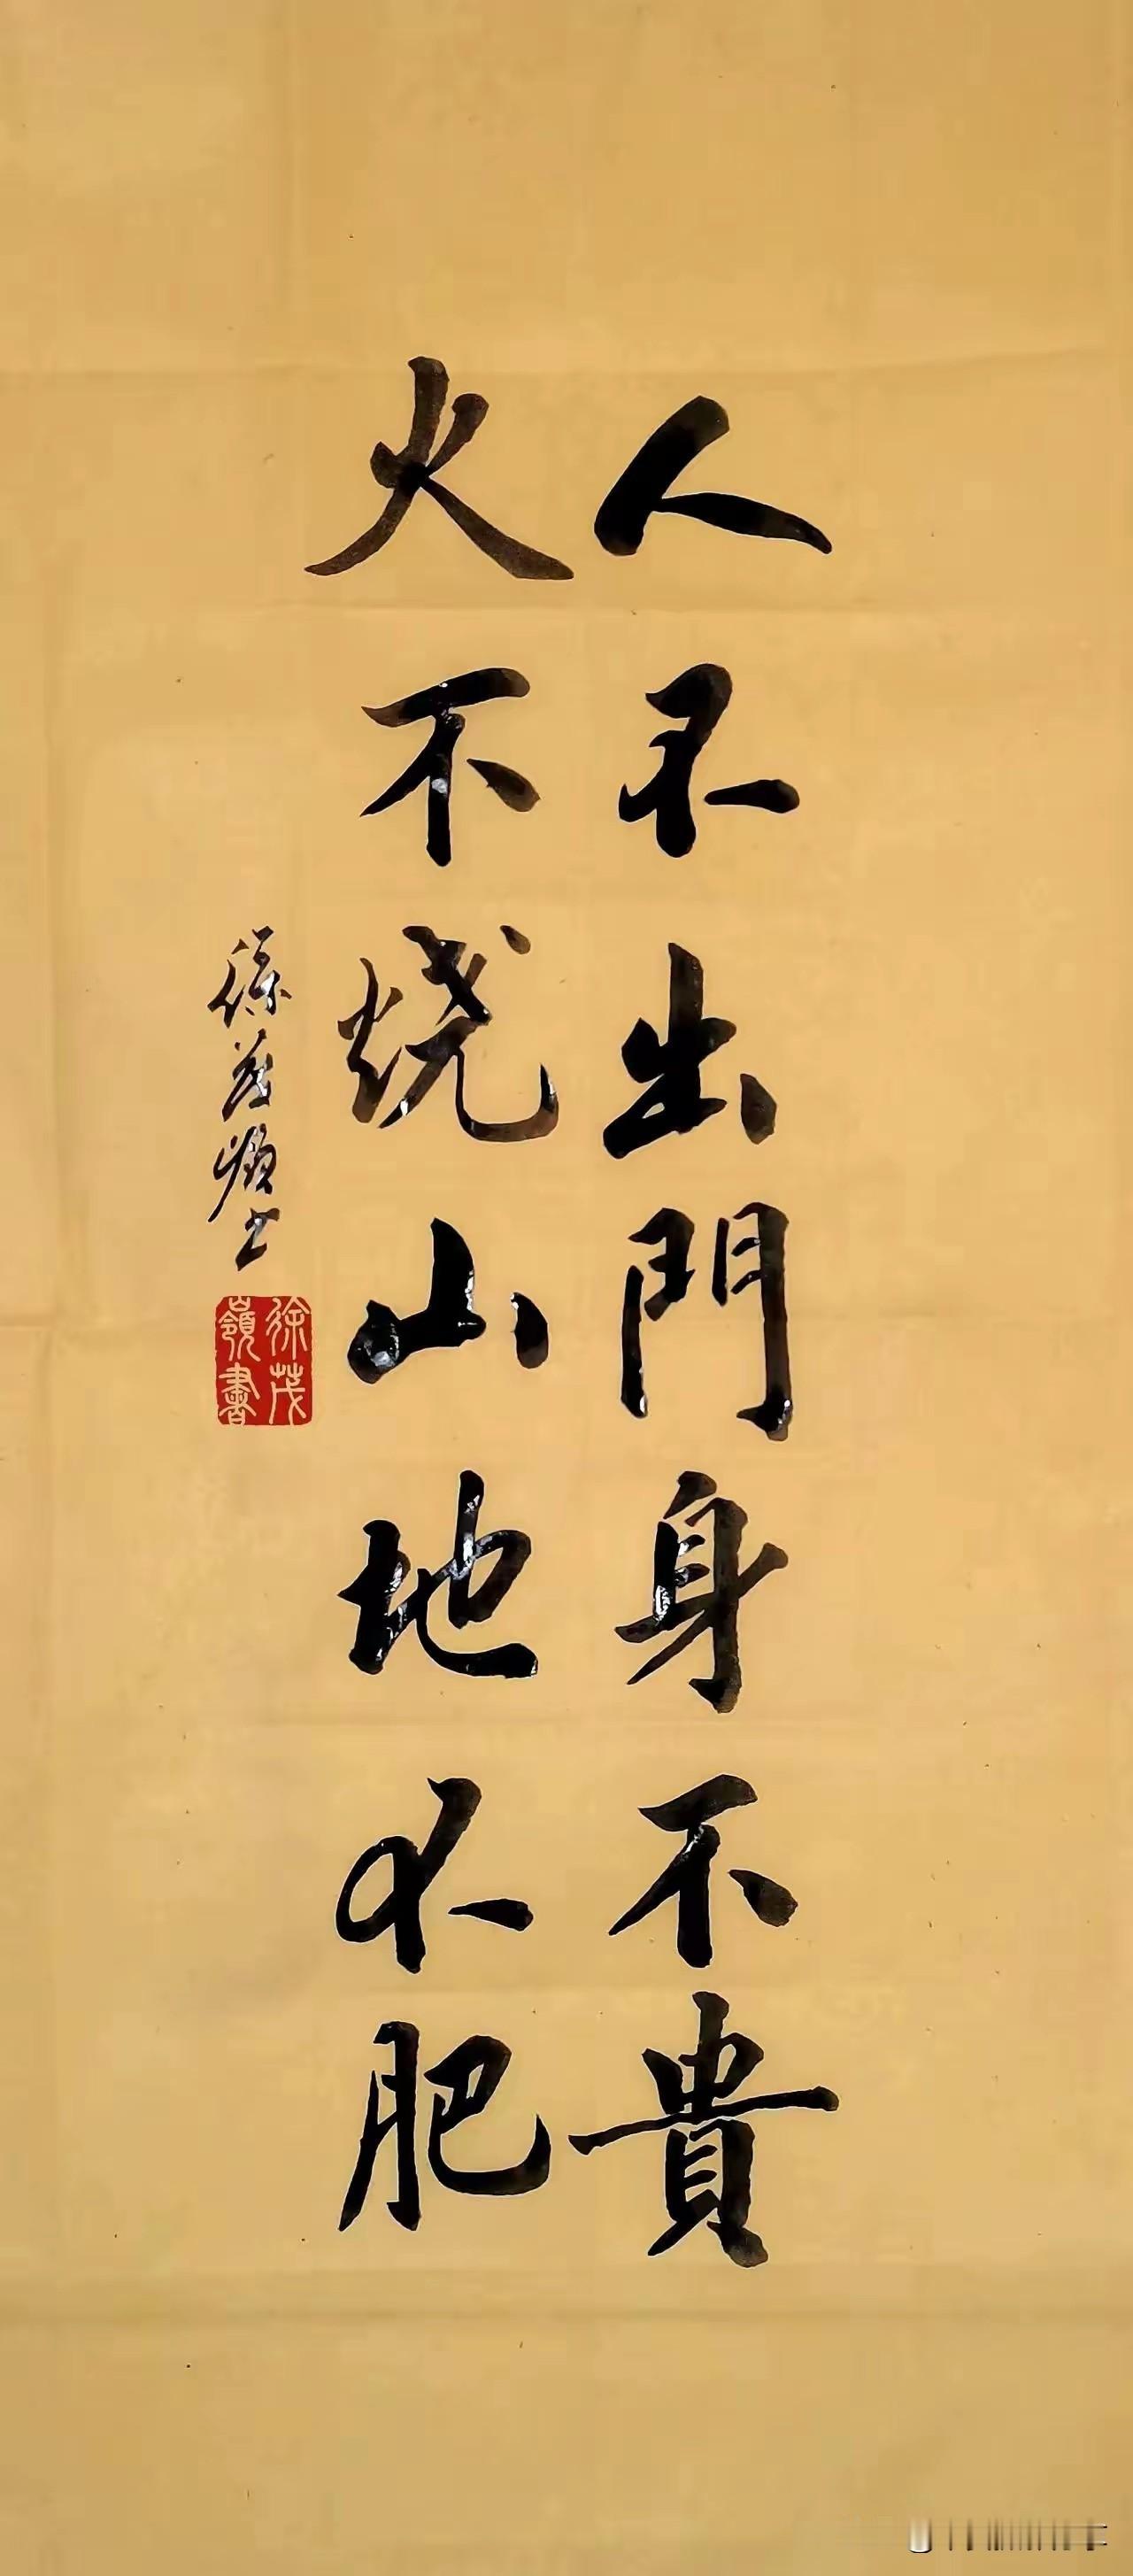 人不出門身不貴
火不烧山地不肥
徐茂嶺书
徐茂
嶺書